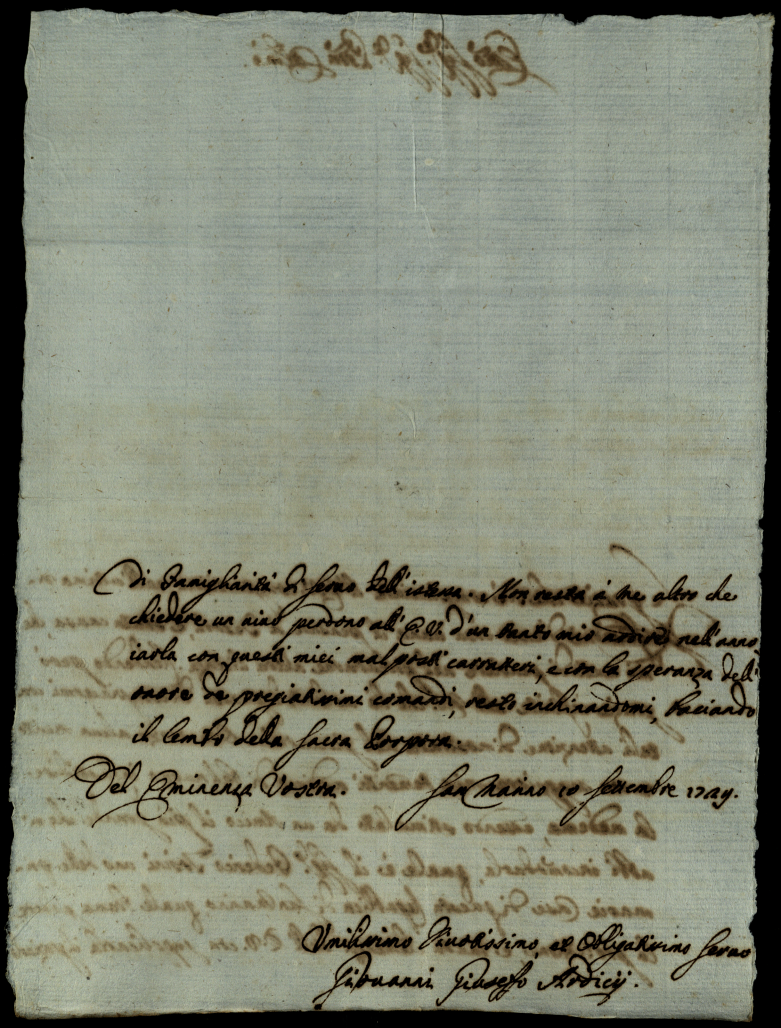 di famigliarità di servo dell'istessa. Non resta à me altro che
chiedere un vivo perdono all'E.V. d'un tanto mio ardire nell'anno
iarla con questi miei mal posti carratteri, e con la speranza dell'
onore de pregiatissimi comandi, resto inchinandomi, baciando
il lembo della Sacra Porpora.
Del Eminenza Vostra. San Marino 10 Settembre 1729.
Umilissimo Divotissimo, et Obligatissimo Servo
Giovanni Giuseffo Ardicij.